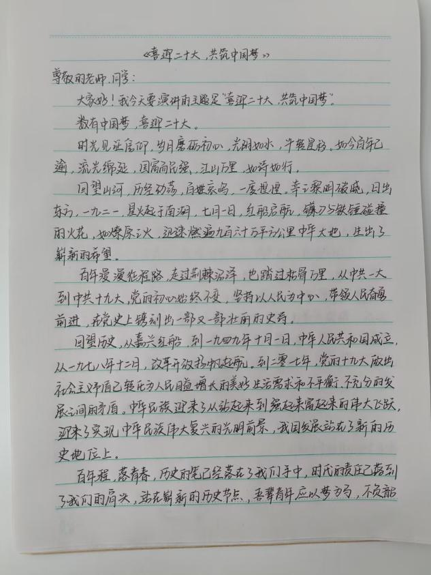 《喜迎二十大,共筑中国梦》
尊敬的老师、同学:
大家好!我今天要演讲的主题是“喜迎二十大,共筑中国梦”。
数百中国梦,喜迎二十大。
时光见证
岁月磨砺初心,光阴如水,千帆竞
如今百年已
逾,流光绵延,国富而民强,江山万里,如诗如行。
回望山河,历经动荡,
一度想
幸之黎明破晓,日出
东方,一九二一,星火起于南湖,七月一日,红船启航,镰刀与铁锤碰撞
的火花,如燎原之火,迅速燃遍九百六十万平方公里中华大地,生出了
崭新的希望。
百年漫漫征程路,走过荆棘沼泽,也踏过
万里,从中共一大
到中共十九大,党的初心始终不变,坚持以人民为中心,带领人民奋勇
前进,在党史上镌刻出一部又一部壮丽的史诗。
回望历史,从嘉兴红船,到一九四九年十月一日,中华人民共和国成立,
从一九七八年十二月,改革开放扬帆起航,到二零一七年,党的十九大做出
社会主要矛盾已转化为人民日益增长的美好生活需求和不平衡、不充分的发
展之间的矛盾,中华民族迎来了从站起来到富起来强起来的伟大飞跃,
迎来了实现中华民族伟大复兴的光明前景,我国发展站在了新的历
史地位上。
百年程,卷青春,历史的笔已经落在了我们手中,时代的责任已落到
了我们的肩头,站在崭新的历史节点,吾辈青年应以梦为马,不负韶